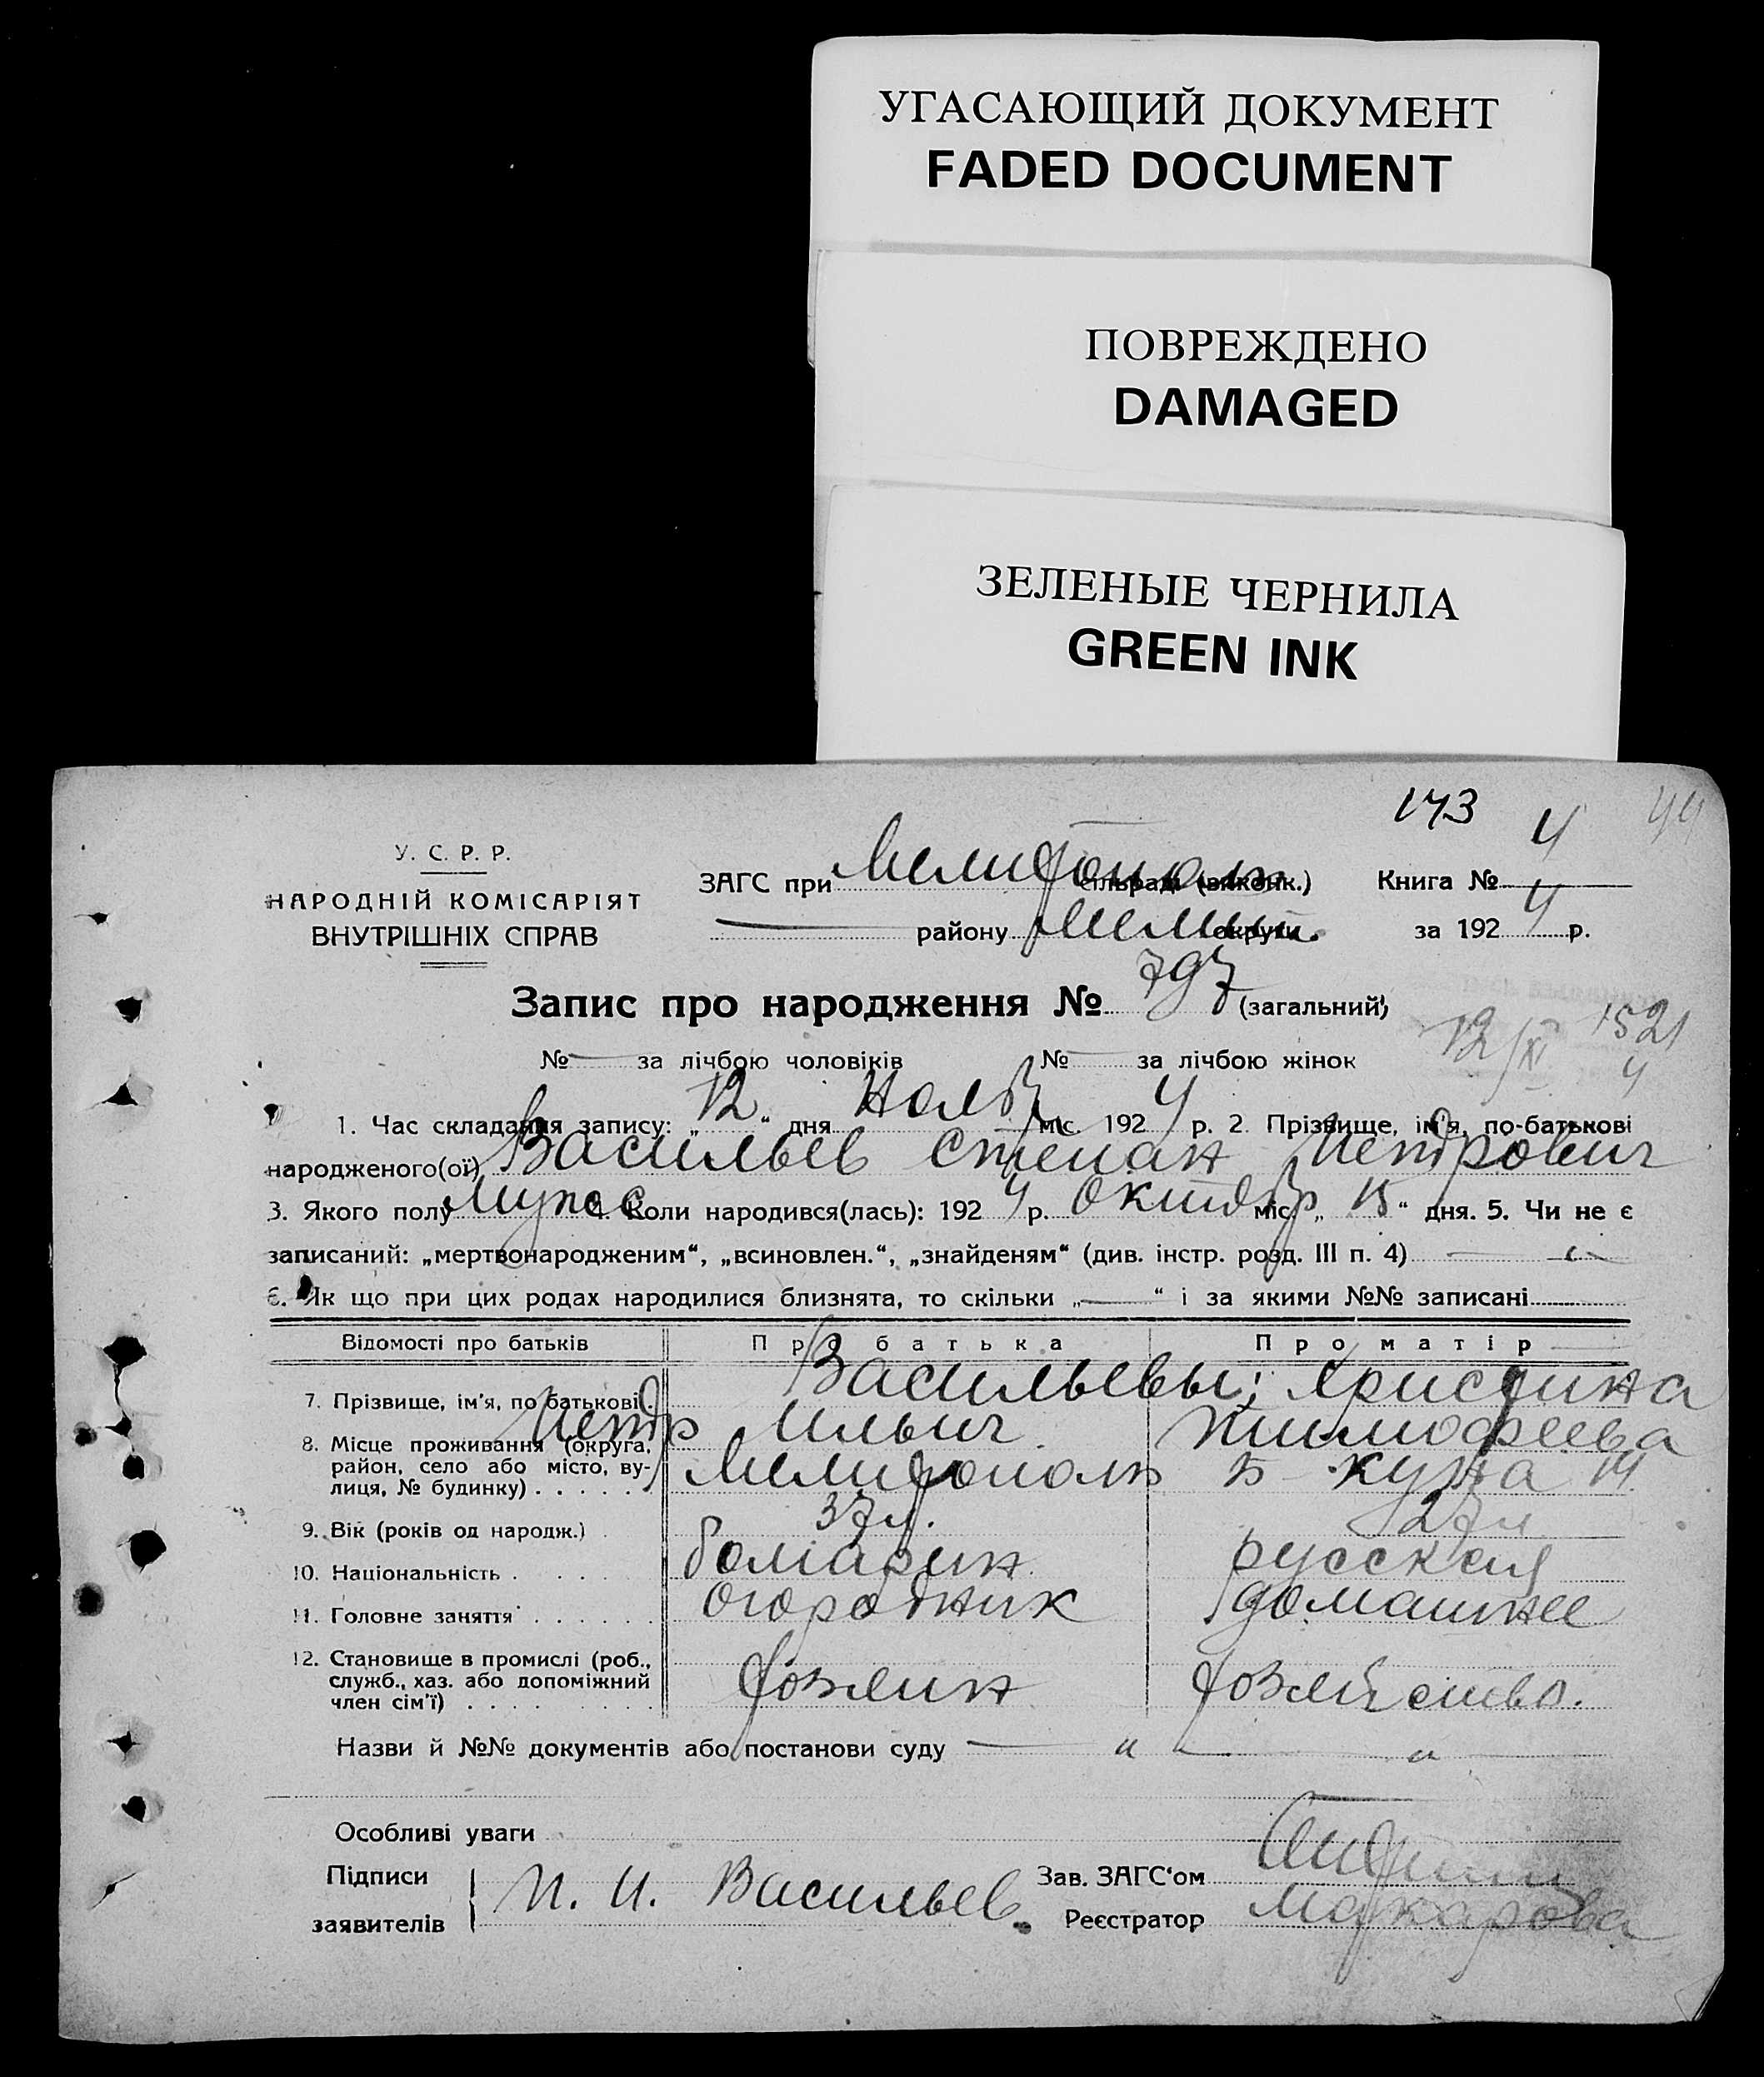 УГАСАЮЩИЙ ДОКУМЕНТ
FADED DOCUMENT
ПОВРЕЖДЕНО
DAMAGED
ЗЕЛЕНЫЕ ЧЕРНИЛА
GREEN INK
173 44
У. С. Р. Р.
НАРОДНІЙ КОМІСАРІЯТ
ВНУТРІШНІХ СПРАВ
ЗАГС при Мелитополь сільраді (виконк.) Книга № 4
району Мелит. округи за 1924 р.
Запис про народження № 797 (загальний)
12/XI 1521
4
№ — за лічбою чоловіків № — за лічбою жінок
1. Час складання запису: „12“ дня Нояб міс. 1924 р. 2. Прізвище, ім'я, по-батькові
народженого(ої) Васильев Степан Петрович
3. Якого полу Мужс 4. Коли народився(лась): 1924 р. Октябр міс. „15“ дня. 5. Чи не є
записаний: „мертвонародженим“, „всиновлен.“, „знайденям“ (див. інстр. розд. III п. 4) —
6. Як що при цих родах народилися близнята, то скільки „—“ і за якими №№ записані
Відомості про батьків Про батька Про матір
7. Прізвище, ім'я, по батькові Васильевы; Христина
Петр Ильич Тимофеева
8. Місце проживання (округа, район, село або місто, вулиця, № будинку) Мелитополь 14
9. Вік (років од народж.) 37 л. 27 л
10. Національність болгарин русская
11. Головне заняття огородник домашнее
12. Становище в промислі (роб., служб., хаз. або допоміжний член сім'ї) хозяин хозяйство.
Назви й №№ документів або постанови суду — „ — „
Особливі уваги
Підписи
заявителів П. И. Васильев
Зав. ЗАГС'ом
Реєстратор Макарова